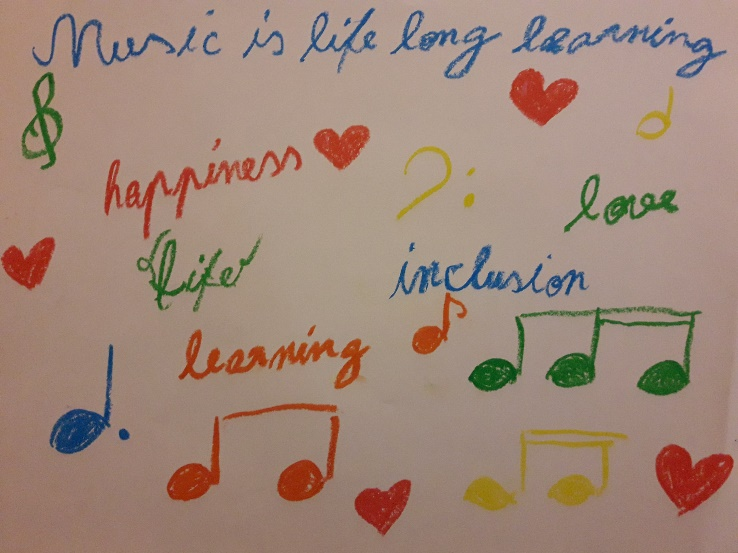 Music is life long learning
happiness
love
life
inclusion
learning